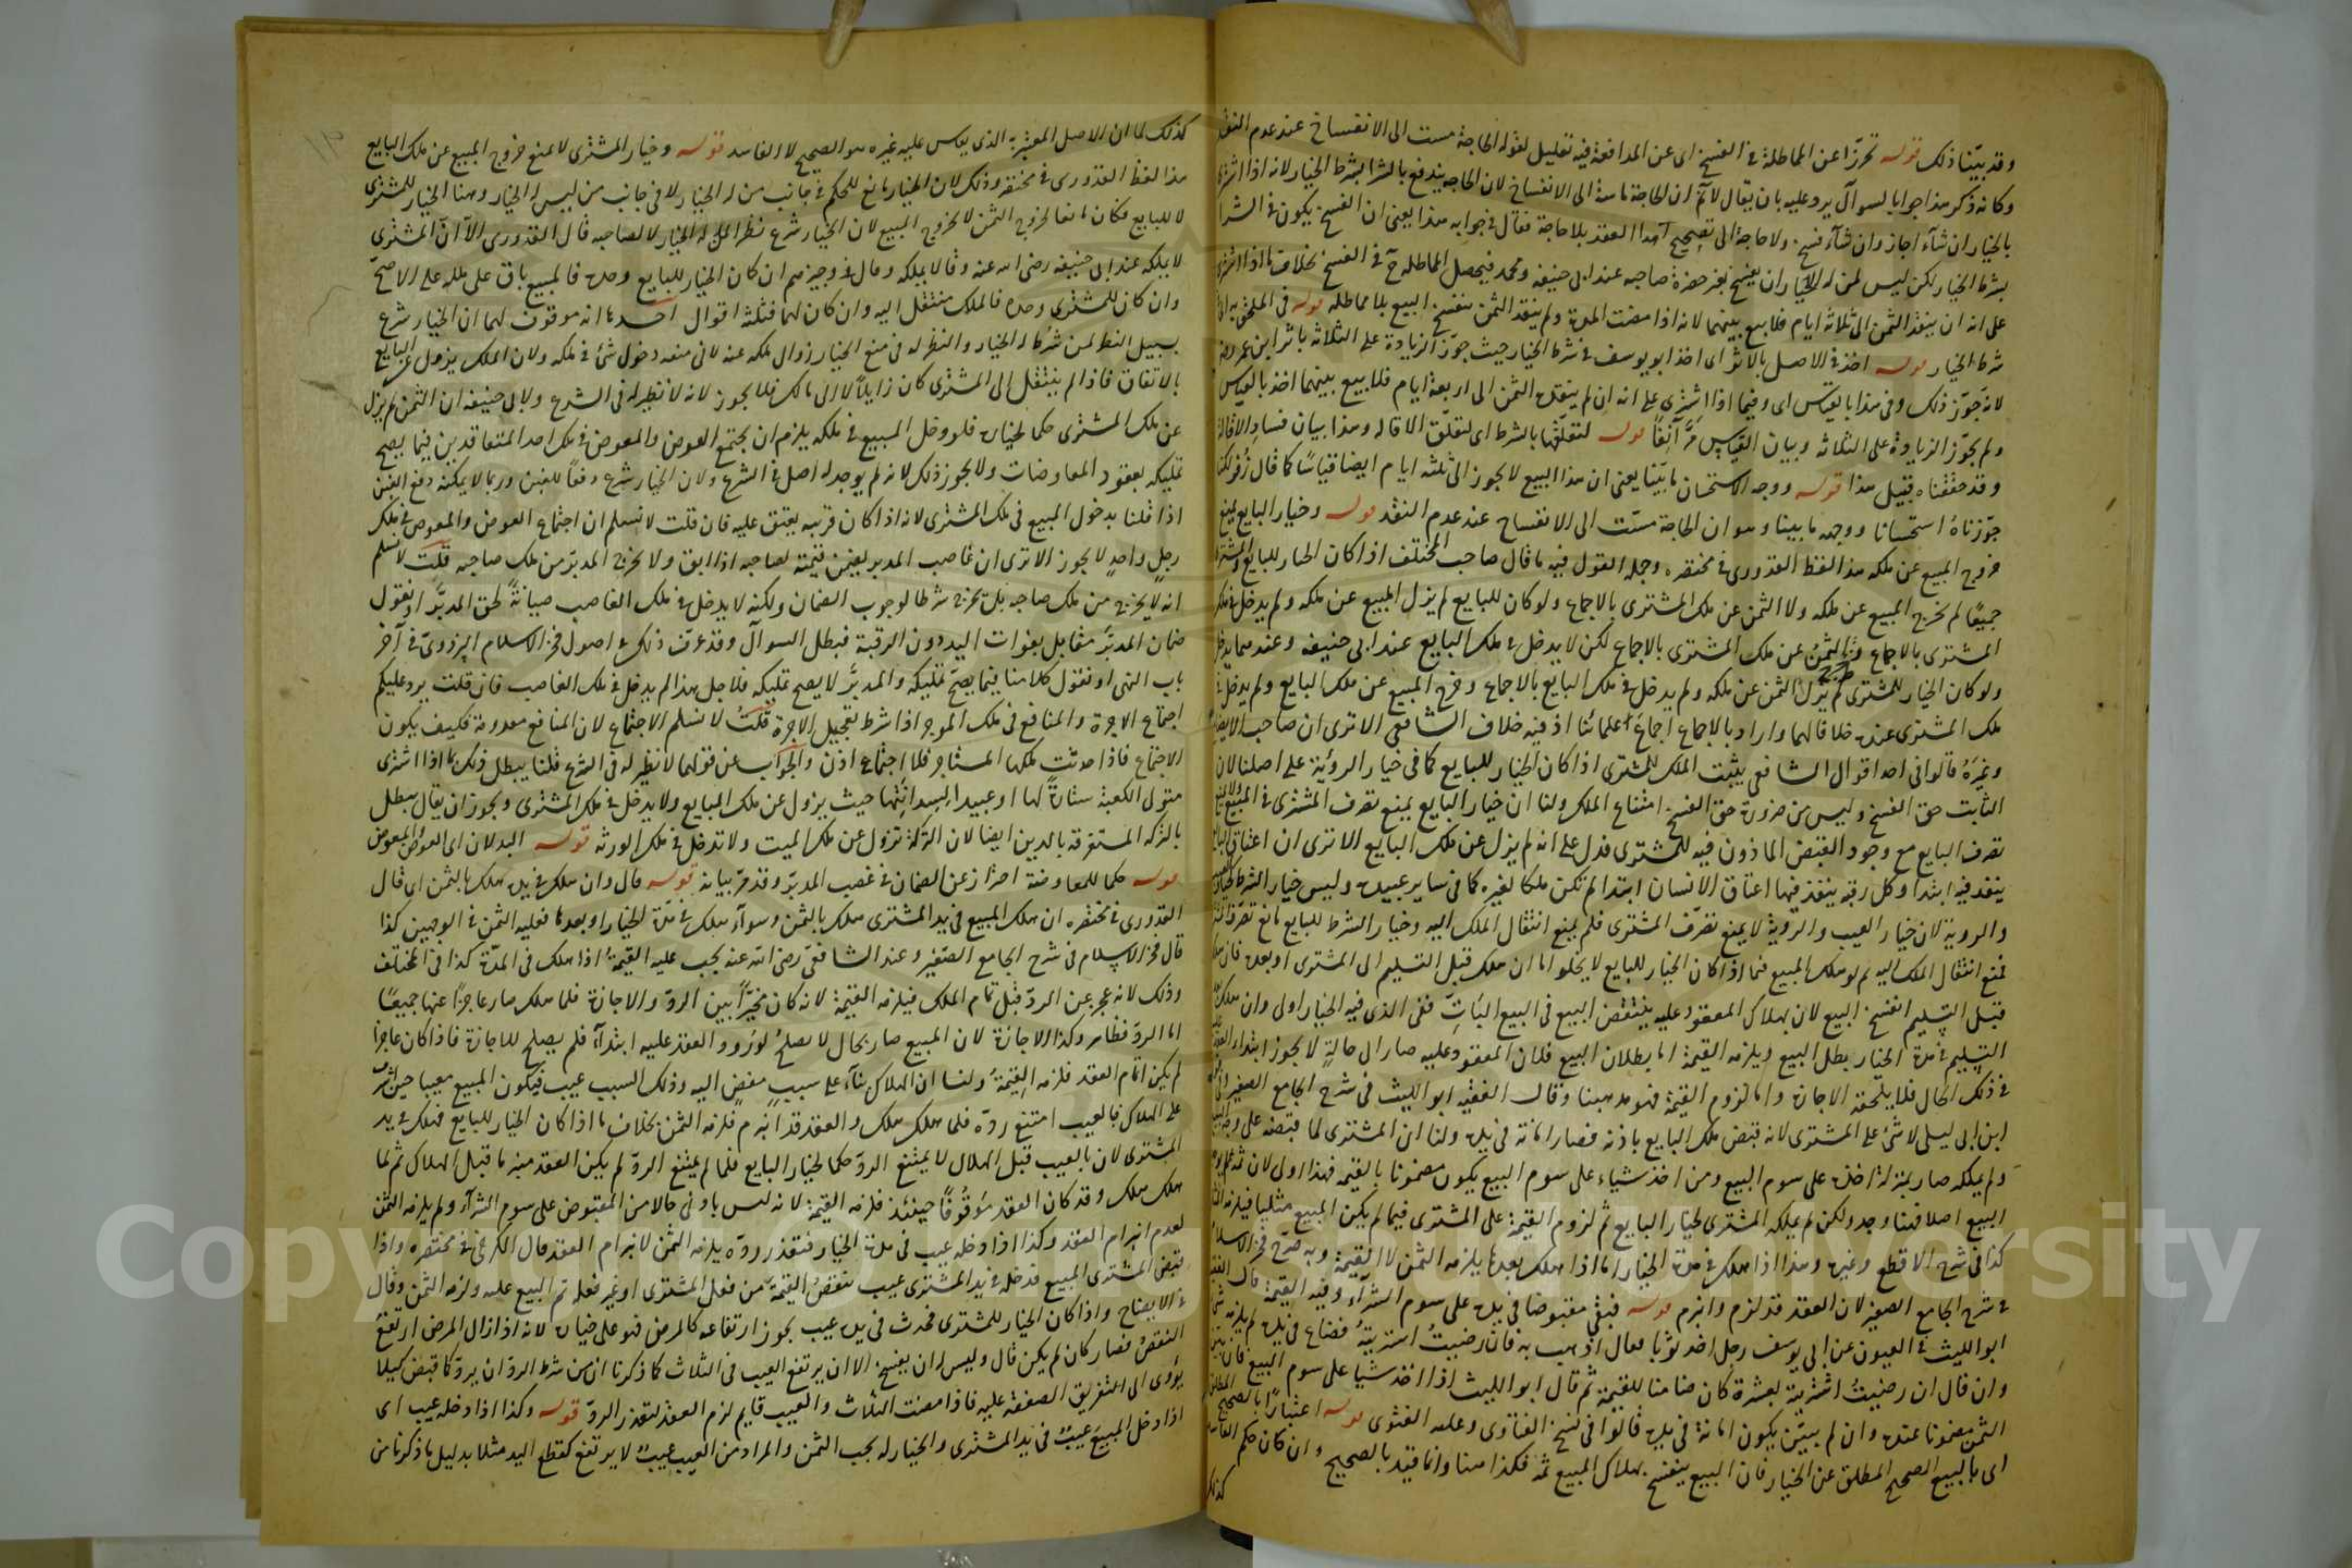 وقد بيّنا ذلك قوله تحرّزا عن المماطلة في الفسخ اى عن المدافعة فيه تعليل لقوله الحاجة مست الى الانفساخ عند عدم النقد
وكانه ذكر هذا جوابا لسوآل يرد عليه بان يقال لا نم ان الحاجة ماسة الى الانفساخ لان الحاجة يندفع بالشرا بشرط الخيار لانه اذا اشترى
بالخيار ان شآء اجاز وان شآء فسخ ولا حاجة الى تصحيح هذا العقد بلا حاجة فقال في جوابه هذا يعنى ان الفسخ يكون في الشرا
بشرط الخيار لكن ليس لمن له الخيار ان يفسخ بغير حضرة صاحبه عند ابى حنيفة ومحمد فيحصل المماطلة ح في الفسخ بخلاف ما اذا اشترى
على انه ان ينقد الثمن الى ثلاثة ايام فلا بيع بينهما لانه اذا مضت المدة ولم ينقد الثمن ينفسخ البيع بلا مماطلة قوله في الملحق به
شرط الخيار قوله اخذ في الاصل بالاثر اى اخذ ابو يوسف في شرط الخيار حيث جوّز الزيادة على الثلاثة باثر ابن عمر
لانه جوّز ذلك وفى هذا بالقياس اى وفيما اذا اشترى على انه ان لم ينقد الثمن الى اربعة ايام فلا بيع بينهما اخذ بالقياس
ولم يجوّز الزيادة على الثلاثة وبيان القياس مرّ آنفًا قوله لتعلّقها بالشرط اى لتعلّق الاقالة وهذا بيان فساد الاقالة
وقد حققناه قبيل هذا قوله ووجه الاستحسان ما بيّنا يعنى ان هذا البيع لا يجوز الى ثلثة ايام ايضا قياسًا كما قال زفر لكنا
جوّزناهُ استحسانا ووجهه ما بينا وهو ان الحاجة مسّت الى الانفساخ عند عدم النقد قوله وخيار البايع يمنع
خروج المبيع عن ملكه هذا لفظ القدورى في مختصره وجملة القول فيه ما قال صاحب المختلف اذا كان الخيار للبايع والمشترى
جميعًا لم يخرج المبيع عن ملكه ولا الثمن عن ملك المشترى بالاجماع ولو كان للبايع لم يزل المبيع عن ملكه ولم يدخل في ملك
المشترى بالاجماع والثمن عن ملك المشترى بالاجماع لكن لا يدخل في ملك البايع عند ابى حنيفة وعندهما يدخل
ولو كان الخيار للمشترى لم يزل الثمن عن ملكه ولم يدخل في ملك البايع بالاجماع وخرج المبيع عن ملك البايع ولم يدخل في
ملك المشترى عنده خلافا لهما واراد بالاجماع اجماع علمائنا اذ فيه خلاف الشافعى الا ترى ان صاحب الايضاح
وغيرهُ قالوا فى احد اقوال الشافعى يثبت الملك للمشترى اذا كان الخيار للبايع كما فى خيار الرؤية على اصلنا لان
الثابت حق الفسخ وليس من ضرورة حق الفسخ امتناع الملك ولنا ان خيار البايع يمنع تصرف المشترى في المبيع
تصرف البايع مع وجود القبض الماذون فيه للمشترى فدل على انه لم يزل عن ملك البايع الا ترى ان اعتاق
ينفد فيه ابتدا وكل رقبة ينفذ فيها اعتاق الانسان ابتدا لم تكن ملكا لغيره كما في ساير عبيده وليس خيار الشرط كخيار
والروية لان خيار العيب والرّوية لا يمنع تصرّف المشترى فلم يمنع انتقال الملك اليه وخيار الشرط للبايع مانع تصرف
فمنع انتقال الملك اليه ثم لو هلك المبيع فيما اذا كان الخيار للبايع لا يخلو اما ان هلك قبل التسليم الى المشترى او بعده فان
قبل التسليم انفسخ البيع لان بهلاك المعقود عليه ينتقض البيع فى البيع الباتّ ففى الذى فيه الخيار اولى وان هلك
التسليم في مدة الخيار بطل البيع ويلزمه القيمة اما بطلان البيع فلان المعقود عليه صار الى حالةٍ لا يجوز ابتداء
في ذلك الحال فلا يلحقه الاجازة واما لزوم القيمة فهو مذهبنا وقال الفقيه ابو الليث فى شرح الجامع الصغير
ابن ابى ليلى لا شئ على المشترى لانه قبض ملك البايع باذنه فصار امانة في يده ولنا ان المشترى لما قبضه على وجه
ولم يملكه صار بمنزلة اخذه على سوم البيع ومن اخذ شياء على سوم البيع يكون مضمونا بالقيمة فهذا اولى لان ثمه
البيع اصلا وهنا وجد ولكن لم يملكه المشترى لخيار البايع ثم لزوم القيمة على المشترى فيما لم يكن المبيع مثليا
كذا فى شرح الاقطع وغيره وهذا اذا هلك في مدة الخيار اما اذا هلك بعدها يلزمه الثمن لا القيمة وبه صرّح فخر الاسلام
في شرح الجامع الصغير لان العقد قد لزم وانبرم قوله فبقى مقبوضا في يده على سوم الشرآء وفيه القيمة قال الفقيه
ابو الليث في العيون عن ابى يوسف رجل اخذ ثوبا فقال اذهب به فان رضيتُ اشتريته فضاع في يده لم يلزمه شئ
وان قال ان رضيتُ اشتريته بعشرة كان ضامنا للقيمة ثم قال ابو الليث اذا اخذ شيا على سوم البيع فان
الثمن مضمونا عنده وان لم يبيّن يكون امانة في يده قالوا في نسخ الفتاوى وعليه الفتوى قوله اعتبارًا بالصحيح المطلق
اى بالبيع الصحيح المطلق عن الخيار فان البيع ينفسخ بهلاك المبيع ثمه فكذا هنا وانما قيد بالصحيح وان كان حكم
كذلك
كذلك لما ان الاصل المعتبر به الذى يقاس عليه غيره هو الصحيح لا الفاسد قوله وخيار المشترى لا يمنع خروج المبيع عن ملك البايع
هذا لفظ القدورى في مختصره وذلك لان الخيار مانع للحكم في جانب من له الخيار لا فى جانب من ليس له الخيار وهنا الخيار للمشترى
لا للبايع فكان مانعا لخروج الثمن لا لخروج المبيع لان الخيار شرع نظرا لمن له الخيار لا لصاحبه قال القدورى الّا انّ المشترى
لا يملكه عند ابى حنيفة رضى الله عنه وقالا يملكه وقال في وجيزهم ان كان الخيار للبايع وحده فالمبيع باق على ملكه على الاصحّ
وان كان للمشترى وحده فالملك منتقل اليه وان كان لهما فثلثة اقوال احدها انه موقوف لهما ان الخيار شرع
بسبيل النظر لمن شُرط له الخيار والنظر له فى منع الخيار زوال ملكه عنه لا فى منعه دخول شئ في ملكه ولان الملك يزول عن البايع
بالاتفاق فاذا لم ينتقل الى المشترى كان زايلًا لا الى مالك فلا يجوز لانه لا نظير له فى الشرع ولابى حنيفة ان الثمن لم يزل
عن ملك المشترى حكما لخياره فلو دخل المبيع في ملكه يلزم ان يجتمع العوض والمعوض في ملك احد المتعاقدين فيما يصح
تمليكه بعقود المعاوضات ولا يجوز ذلك لانه لم يوجد له اصل في الشرع ولان الخيار شرع دفعًا للغبن وربما لا يمكنه دفع الغبن
اذا قلنا بدخول المبيع فى ملك المشترى لانه اذا كان قريبه يعتق عليه فان قلت لا نسلم ان اجتماع العوض والمعوض في ملك
رجلٍ واحدٍ لا يجوز الا ترى ان غاصب المدبر يضمن قيمته لصاحبه اذا ابق ولا يخرج المدبّر من ملك صاحبه قلت لا نسلم
انه لا يخرج من ملك صاحبه بل يخرج شرطا لوجوب الضمان ولكنه لا يدخل في ملك الغاصب صيانةً لحق المدبَّر او نقول
ضمان المدبّر مقابل بفوات اليد دون الرقبة فبطل السوآل وقد عرف ذلك في اصول فخر الاسلام البزدوىّ في آخر
باب النهى او نقول كلامنا فيما يصحّ تمليكه والمدبَّر لا يصح تمليكه فلاجل هذا لم يدخل في ملك الغاصب فان قلت يرد عليكم
اجتماع الاجرة والمنافع فى ملك الموجر اذا شرط تعجيل الاجرة قلتُ لا نسلم الاجتماع لان المنافع معدومة فكيف يكون
الاجتماع فاذا حدثت يملكها المستاجر فلا اجتماع اذن والجواب عن قولهما لا نظير له فى الشرع قلنا يبطل ذلك بما اذا اشترى
متولى الكعبة ستارةً لها او عبيدا لسدانتها حيث يزول عن ملك البايع ولا يدخل في ملك المشترى ويجوز ان يقال يبطل
بالتركه المستغرقه بالدين ايضا لان التركة تزول عن ملك الميت ولا تدخل في ملك الورثه قوله البدلان اى العوض والمعوض
قوله حكما للمعاوضة احترازعن الضمان في غصب المدبّر وقد مرّ بيانه قوله قال وان هلك في يده هلك بالثمن اى قال
القدورى في مختصره ان هلك المبيع فى يد المشترى هلك بالثمن وسوآء هلك في مدّة الخيار او بعدها فعليه الثمن في الوجهين كذا
قال فخر الاسلام فى شرح الجامع الصّغير وعند الشافعىّ رضى الله عنه يجب عليه القيمةُ اذا هلك فى المدّة كذا فى المختلف
وذلك لانه عجز عن الردّ قبل تمام الملك فيلزمه القيمة لانه كان مخيّرًا بين الردّ والاجازة فلما هلك صار عاجزًا عنها جميعًا
اما الردّ فظاهر وكذا الاجازة لان المبيع صار بحال لا يصلحُ لورود العقد عليه ابتدآءً فلم يصلح للاجازة فاذا كان عاجزا
لم يكن اتمام العقد فلزمه القيمةُ ولنا ان الهلاك بنآء على سببٍ مفضٍ اليه وذلك السبب عيب فيكون المبيع معيبا حين اشرف
على الهلاك فالعيب امتنع ردّه فلما هلك هلك والعقد قد انبرم فلزمه الثمن بخلاف ما اذا كان الخيار للبايع فهلك في يد
المشترى لان بالعيب قبل الهلاك لا يمتنع الردّ حكما لخيار البايع فلما لم يمتنع الردّ لم يكن العقد منبرما قبل الهلاك ثم لما
هلك هلك وقد كان العقد موقوفًا حينئذ فلزمه القيمة لانه ليس بادنى حالا من المقبوض على سوم الشرآء ولم يلزمه الثمن
لعدم انبرام العقد وكذا اذا دخله عيب فى مدة الخيار فتعذر ردّه يلزمه الثمن لانبرام العقد قال الكرخىّ في مختصره واذا
قبض المشترى المبيع فدخله في يد المشترى عيب ينقصُ القيمة من فعل المشترى او غير فعله تم البيع عليه ولزمه الثمن وقال
في الايضاح واذا كان الخيار للمشترى فحدث فى يده عيب يجوز ارتفاعه كالمرض فهو على خياره لانه اذا زال المرض ارتفع
النقصُ فصار كان لم يكن قال وليس له ان يفسخ الا ان يرتفع العيب فى الثلاث كما ذكرنا ان من شرط الردّ ان يردّ كما قبض كيلا
يؤدى الى التفريق الصفقة عليه فاذا مضت الثلاث والعيب قايم لزم العقد لتعذر الردّ قوله وكذا اذا دخله عيب اى
اذا دخل المبيعَ عيبٌ فى يد المشترى والخيار له يجب الثمن والمراد من العيب عيبٌ لا يرتفع كقطع اليد مثلا بدليل ما ذكرنا من
Copyright © King Saud University